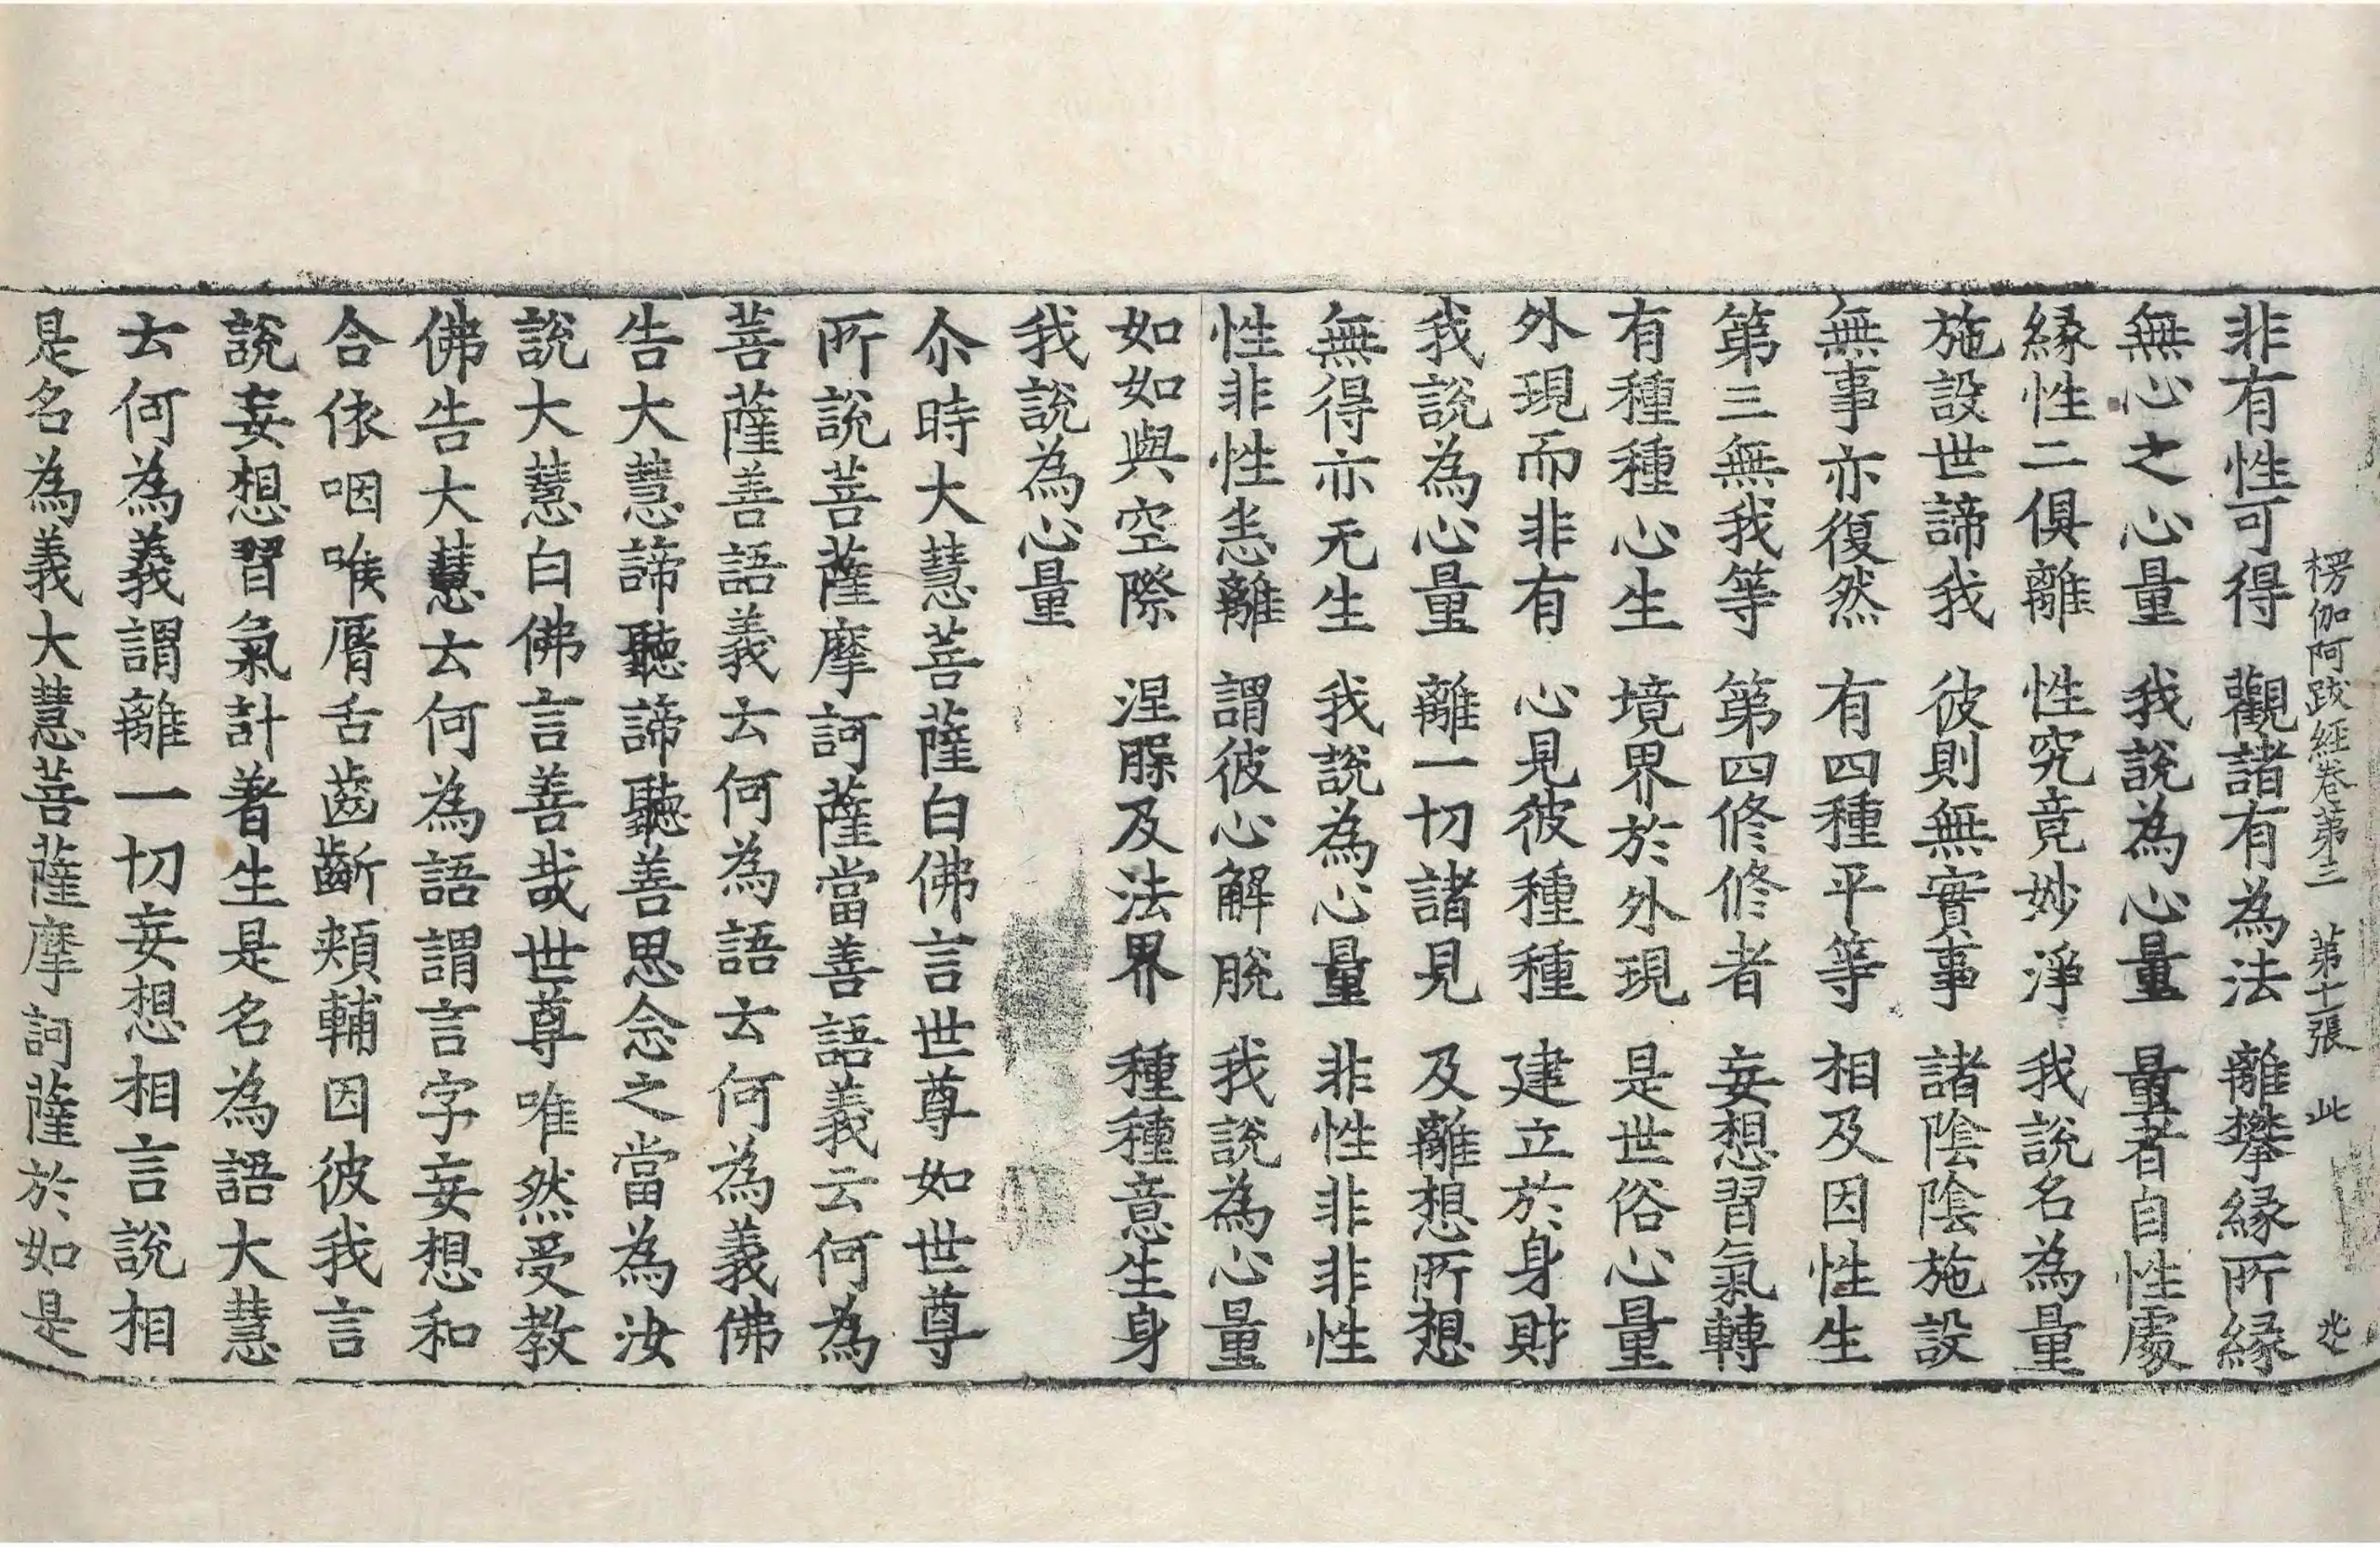 楞伽阿跋経卷第三　第十一張　此
非有性可得　觀諸有為法　離攀縁所縁
無心之心量　我説為心量　量者自性處
縁性二俱離　性究竟妙淨　我説名為量
施設世諦我　彼則無實事　諸陰陰施設
無事亦復然　有四種平等　相及因性生
第三無我等　第四修修者　妄想習氣轉
有種種心生　境界於外現　是世俗心量
外現而非有　心見彼種種　建立於身財
我説為心量　離一切諸見　及離想所想
無得亦无生　我説為心量　非性非非性
性非性悉離　謂彼心解脫　我説為心量
如如與空際　涅槃及法界　種種意生身
我説為心量
尒時大慧菩薩白佛言世尊如世尊
所説菩薩摩訶薩當善語義云何為
菩薩善語義云何為語云何為義佛
告大慧諦聽諦聽善思念之當為汝
説大慧白佛言善哉世尊唯然受教
佛告大慧云何為語謂言字妄想和
合依咽喉脣舌齒齗頰輔因彼我言
説妄想習氣計著生是名為語大慧
云何為義謂離一切妄想相言説相
是名為義大慧菩薩摩訶薩於如是